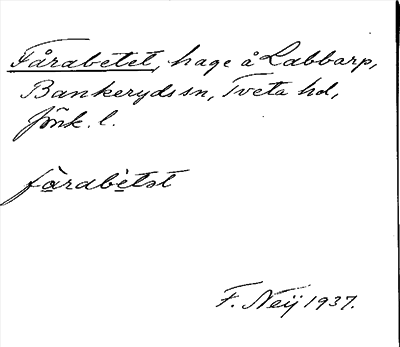 Fårabetet, hage å Labbarp,
Bankeryds sn, Tveta hd,
Jönk. l.
fàrabètət
F. Neij 1937.